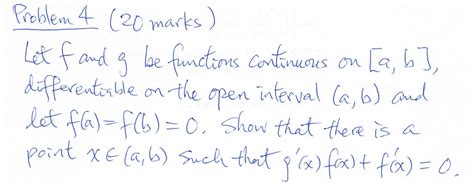 Problem 4 (20 marks)
Let f and g be functions continuous on [a, b],
differentiable on the open interval (a, b) and
let f(a)=f(b)=0. Show that there is a
point x∈(a,b) such that g'(x)f(x)+f'(x)=0.